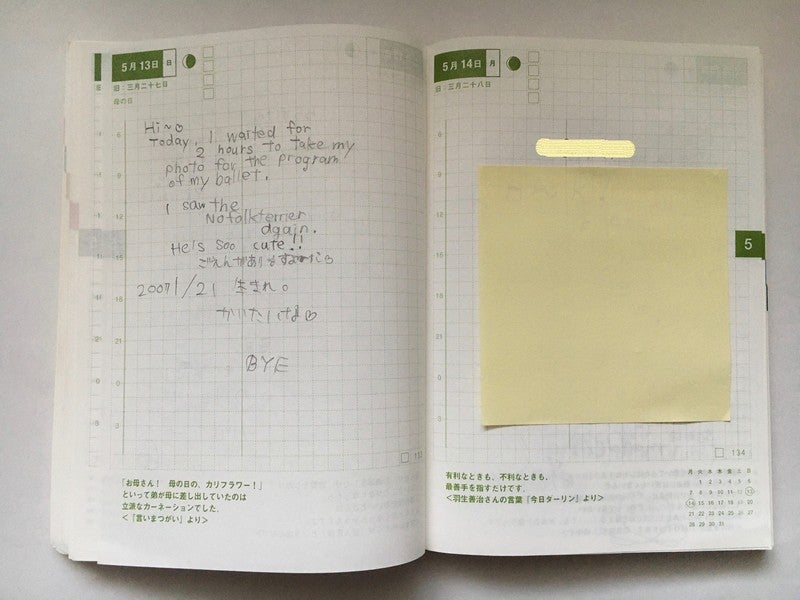 5月13日 日
旧：三月二十七日
母の日
6
9
12
15
18
21
0
3
Hi~♡
Today, I waited for
2 hours to take my
photo for the program
of my ballet.
I saw the
Nofolkterrier
again.
He's Soo cute!!
2007/1/21 生まれ。
かいたいけな♡
BYE
133
「お母さん！ 母の日の、カリフラワー！」
といって弟が母に差し出していたのは
立派なカーネーションでした。
＜『言いまつがい』より＞
5月14日 月
旧：三月二十八日
6
9
12
15
18
21
0
3
5
134
有利なときも、不利なときも、
最善手を指すだけです。
＜羽生善治さんの言葉『今日ダーリン』より＞
月 火 水 木 金 土 日
1 2 3 4 5 6
7 8 9 10 11 12 13
14 15 16 17 18 19 20
21 22 23 24 25 26 27
28 29 30 31